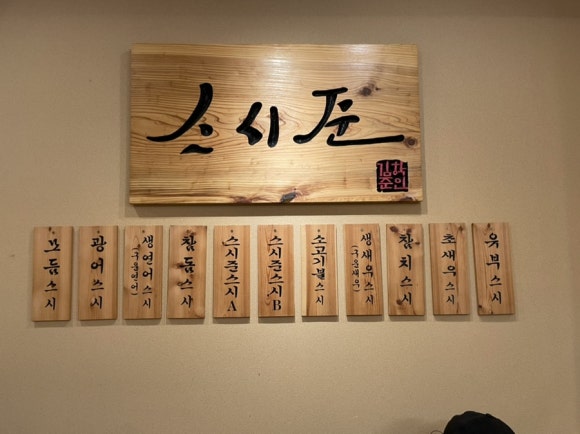 스시준
김학
준인
모듬스시
광어스시
생연어스시
(구운연어)
참돔스시
스시준스시A
스시준스시B
소고기불스시
생새우스시
(구운새우)
참치스시
초새우스시
유부스시